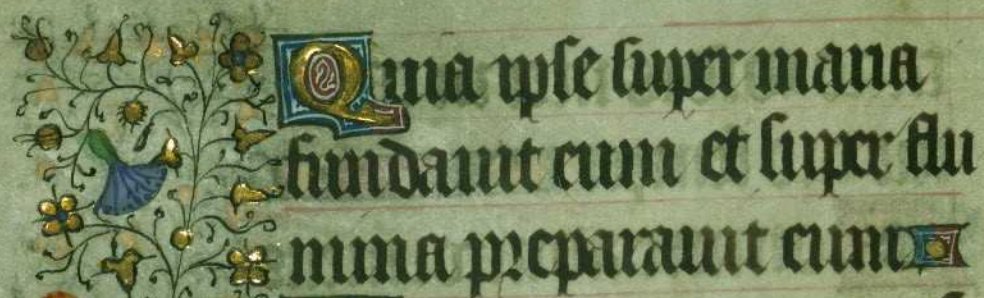 Quia ipse super maria
fundauit eum et super flu
mina preparauit eum